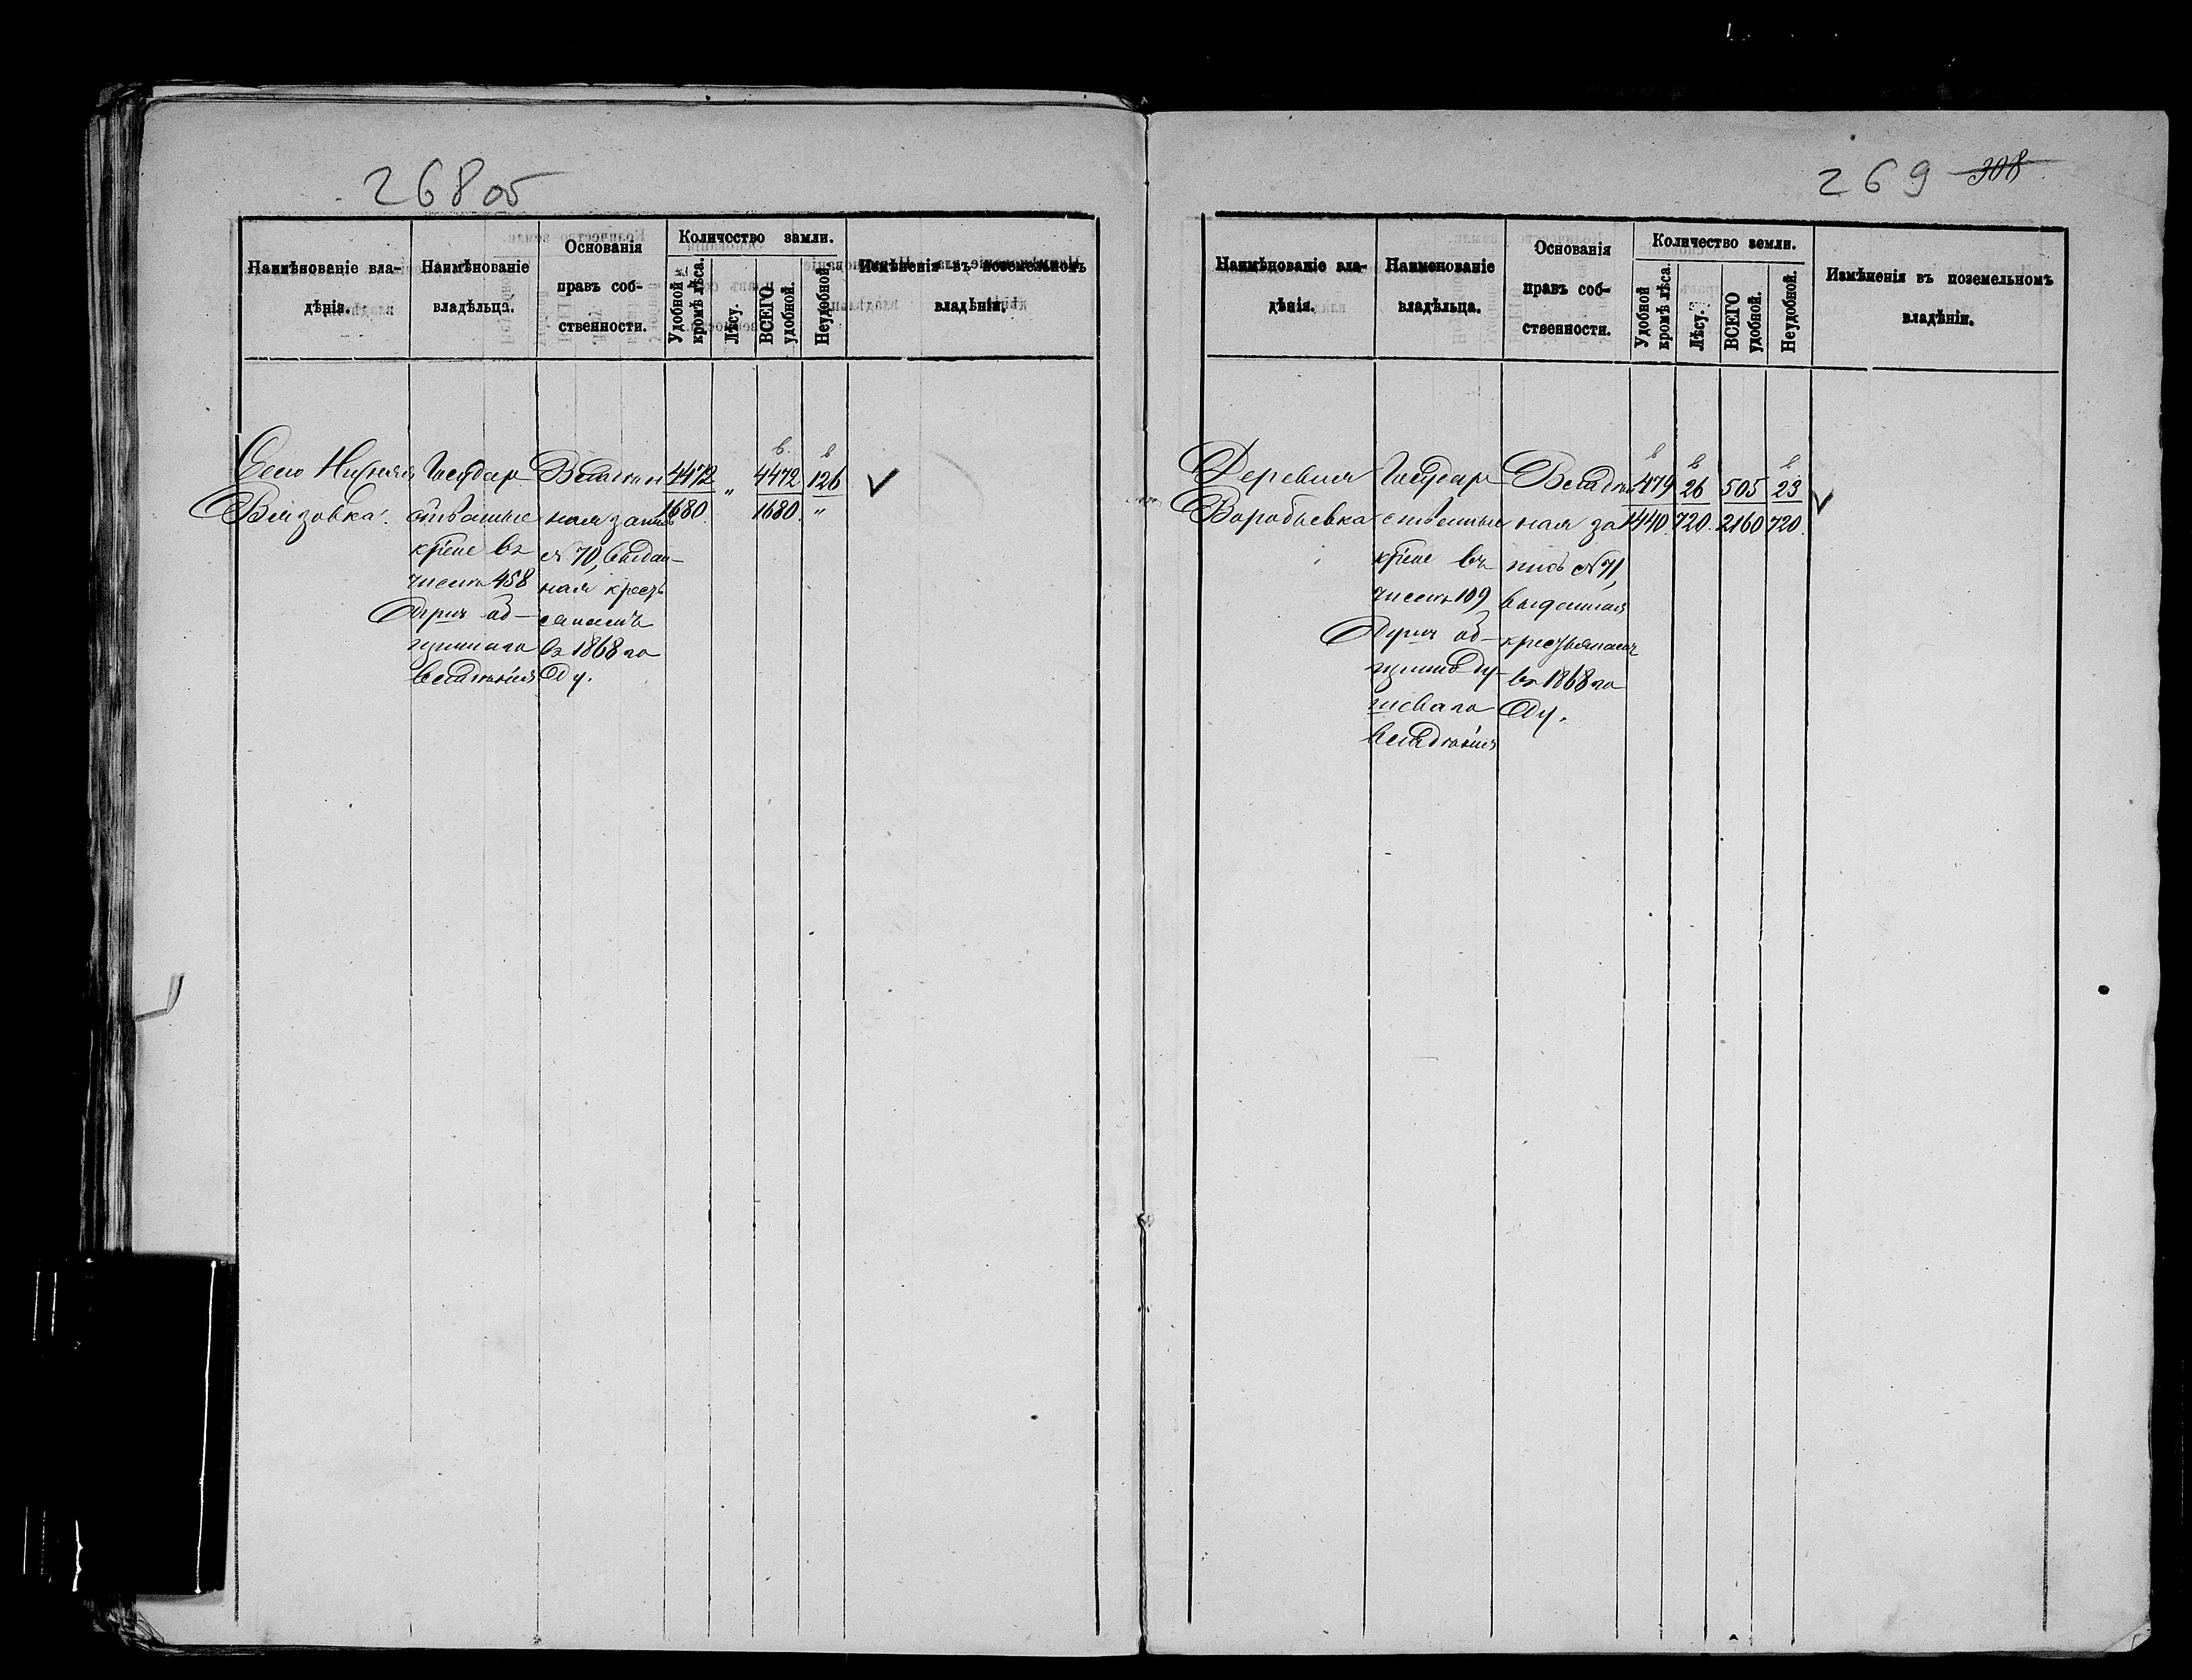 268об
Наимѣнованіе вла-
дѣнія.
Наимѣнованіе
владѣльца.
Основанія
правъ соб-
ственности.
Количество земли.
Удобной
кромѣ лѣса.
Лѣсу.
ВСЕГО
удобной.
Неудобной.
Измѣненія въ поземельномъ
владѣніи.
Село Нижняя
Вязовка.
Государ
ственные
кр̃тне въ
числѣ 458
душъ об-
щиннаго
владѣнія
Владѣн
ная запись
№ 70, выдан-
ная кресть
янамъ
въ 1868 го
ду.
4472
1680
"
4472
1680
126
"
269 308
Наимѣнованіе вла-
дѣнія.
Наименованіе
владѣльца.
Основанія
правъ соб-
ственности.
Количество земли.
Удобной
кромѣ лѣса.
Лѣсу.
ВСЕГО
удобной.
Неудобной.
Измѣненія въ поземельномъ
владѣніи.
Деревня
Воробьевка
Государ
ственные
кр̃тне въ
числѣ 109
душъ об-
щинно ду-
шеваго
владѣнія
Владѣн
ная за
пись № 71,
выданная
крестьянамъ
въ 1868 го
ду.
479
1440
26
720
505
2160
23
720